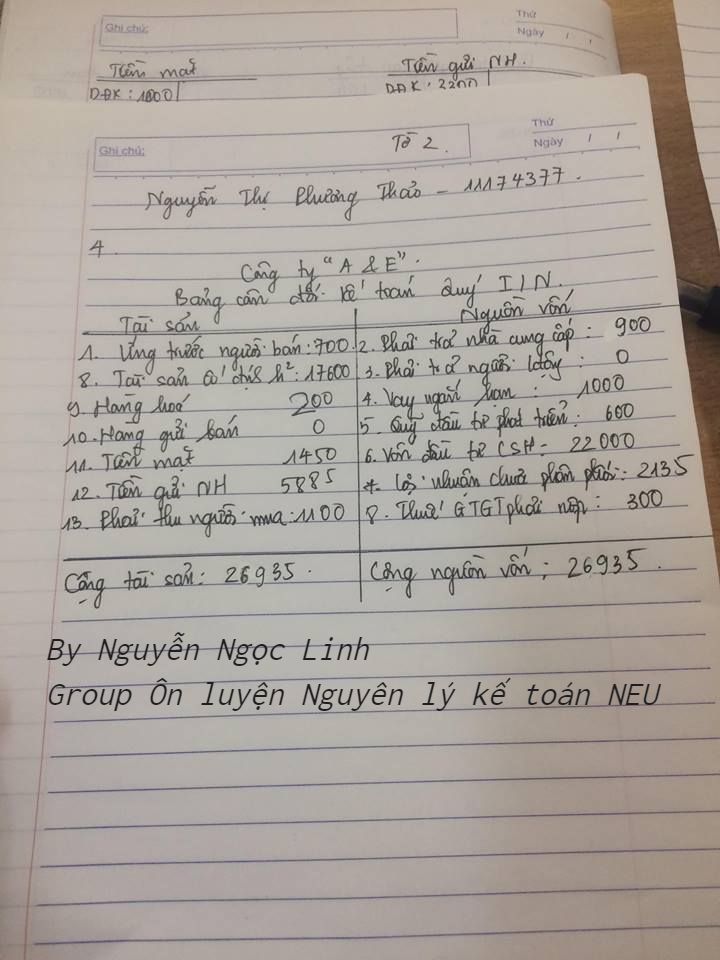 Ghi chú:
Thứ
Ngày / /
Tiền mặt
Tiền gửi NH.
DĐK: 1000
DĐK: 2200
Ghi chú:
Tờ 2.
Thứ
Ngày / /
Nguyễn Thị Phương Thảo - 11174377.
4.
Công ty "A & E".
Bảng cân đối kế toán Quý I/N.
Tài sản
Nguồn vốn
1. Ứng trước người bán: 700.
8. Tài sản cố định h²: 17600
9. Hàng hoá 200
10. Hàng gửi bán 0
11. Tiền mặt 1450
12. Tiền gửi NH 5885
13. Phải thu người mua: 1100
2. Phải trả nhà cung cấp: 900
3. Phải trả người lđộng: 0
4. Vay ngắn hạn: 1000
5. Quỹ đầu tư phát triển: 600
6. Vốn đầu tư CSH: 22000
7. Lợi nhuận chưa phân phối: 2135
8. Thuế GTGT phải nộp: 300
Cộng tài sản: 26935.
Cộng nguồn vốn: 26935.
By Nguyễn Ngọc Linh
Group Ôn luyện Nguyên lý kế toán NEU